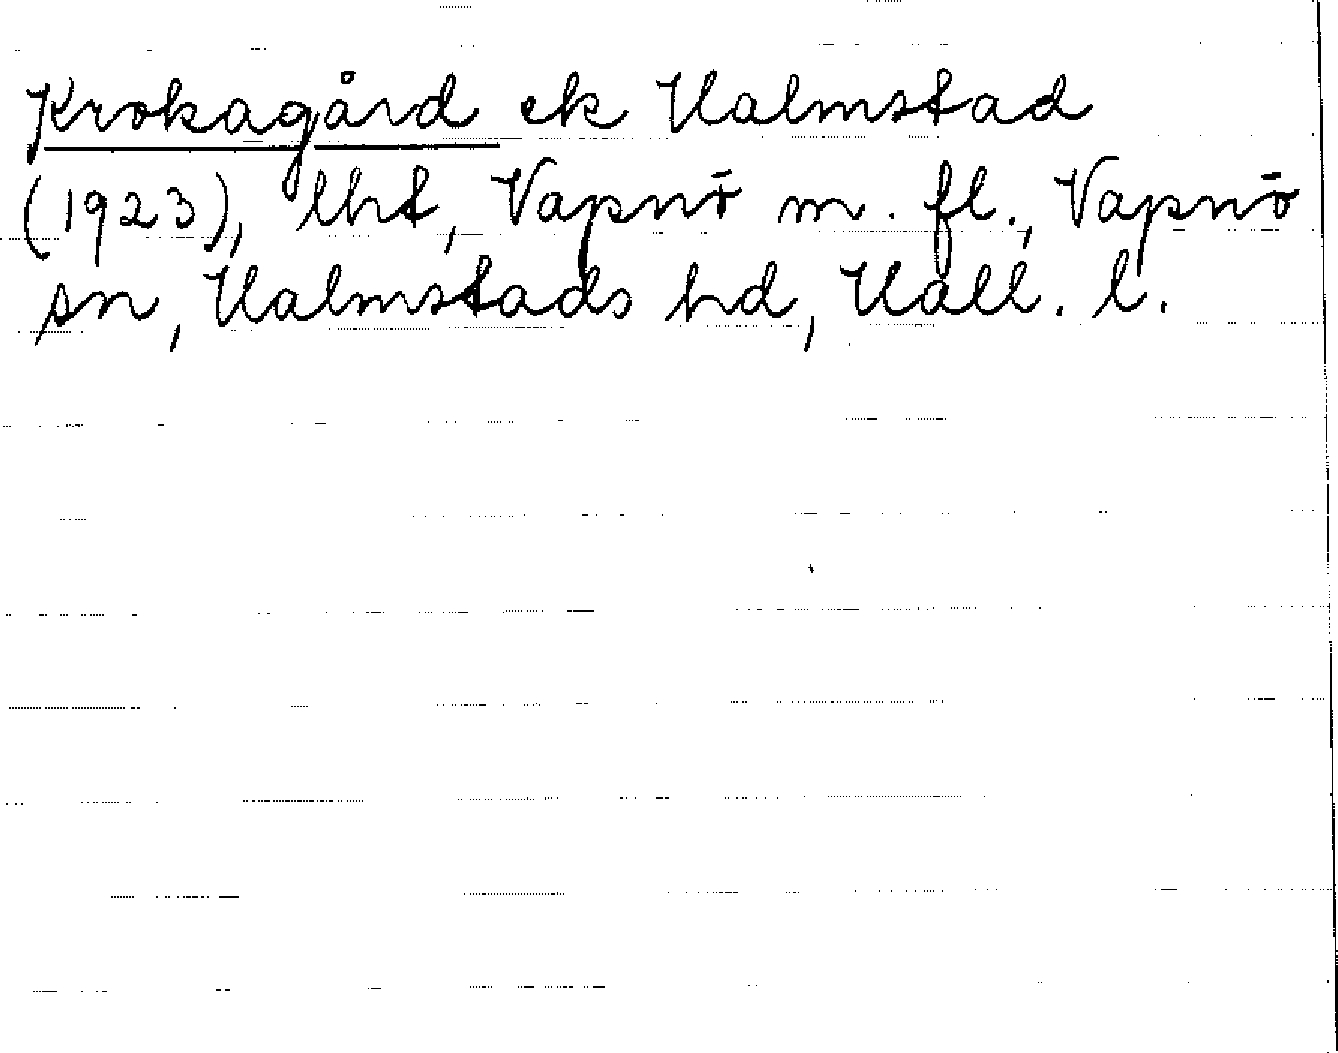 Krokagård ek Halmstad
(1923), lht, Vapnö m. fl., Vapnö
sn, Halmstads hd, Hall. l.